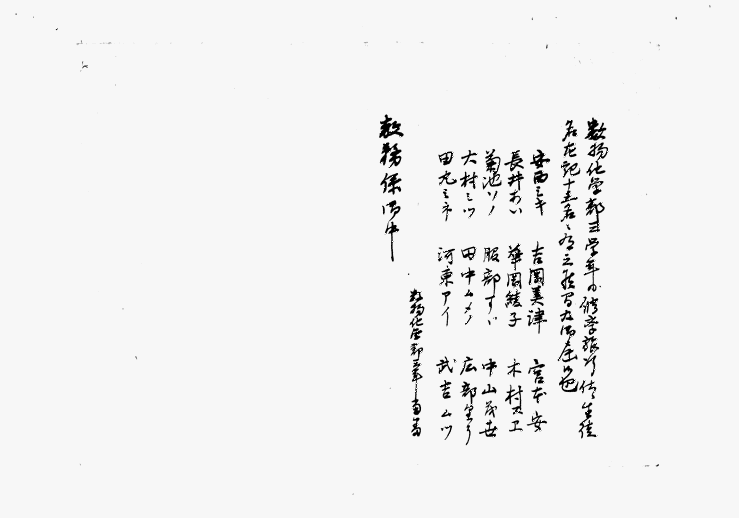 数物化学部三学年の修学旅行 生徒
名左記十五名 有之 間 及御届候也
安西ミキ 吉岡美津 宮本安
長井あい 華岡綾子 木村スエ
菊池ソノ 服部すゞ 中山茂世
大村ミツ 田中ムメノ 広部里う
田丸ミネ 河東アイ 武吉ムツ
数物化学部三年 当番
教務係御中